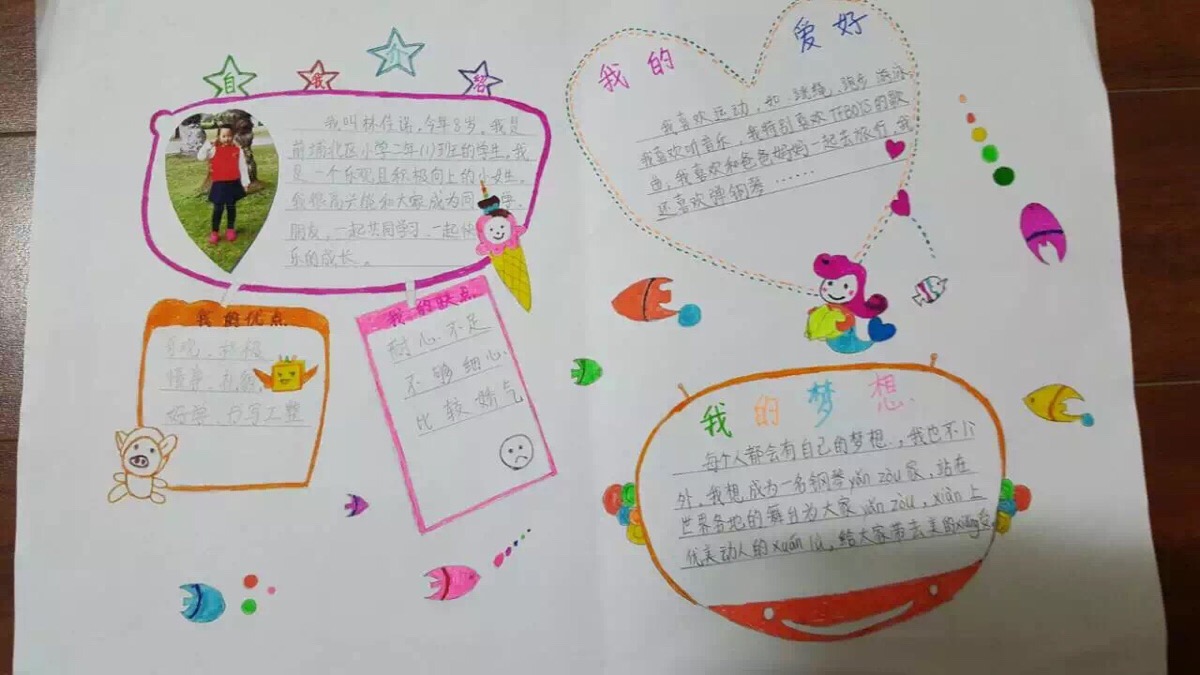 自我介绍
我叫林佳诺，今年8岁。我是
前埔北区小学二年(1)班的学生。我
是一个乐观且积极向上的小女生。
我很高兴能和大家成为同学、
朋友，一起共同学习一起快
乐的成长。
我的优点
乐观、积极
懂事、礼貌
好学、书写工整
我的缺点
耐心不足
不够细心
比较娇气
我的爱好
我喜欢运动，如跳绳、跑步游泳
我喜欢听音乐，我特别喜欢TFBOYS的歌
曲，我喜欢和爸爸妈妈一起去旅行，我
还喜欢弹钢琴……
我的梦想
每个人都会有自己的梦想，我也不例
外。我想成为一名钢琴yǎn zòu家，站在
世界各地的舞台为大家yǎn zòu，xiàn上
优美动人的xuán lǜ，给大家带去美的xiǎng受